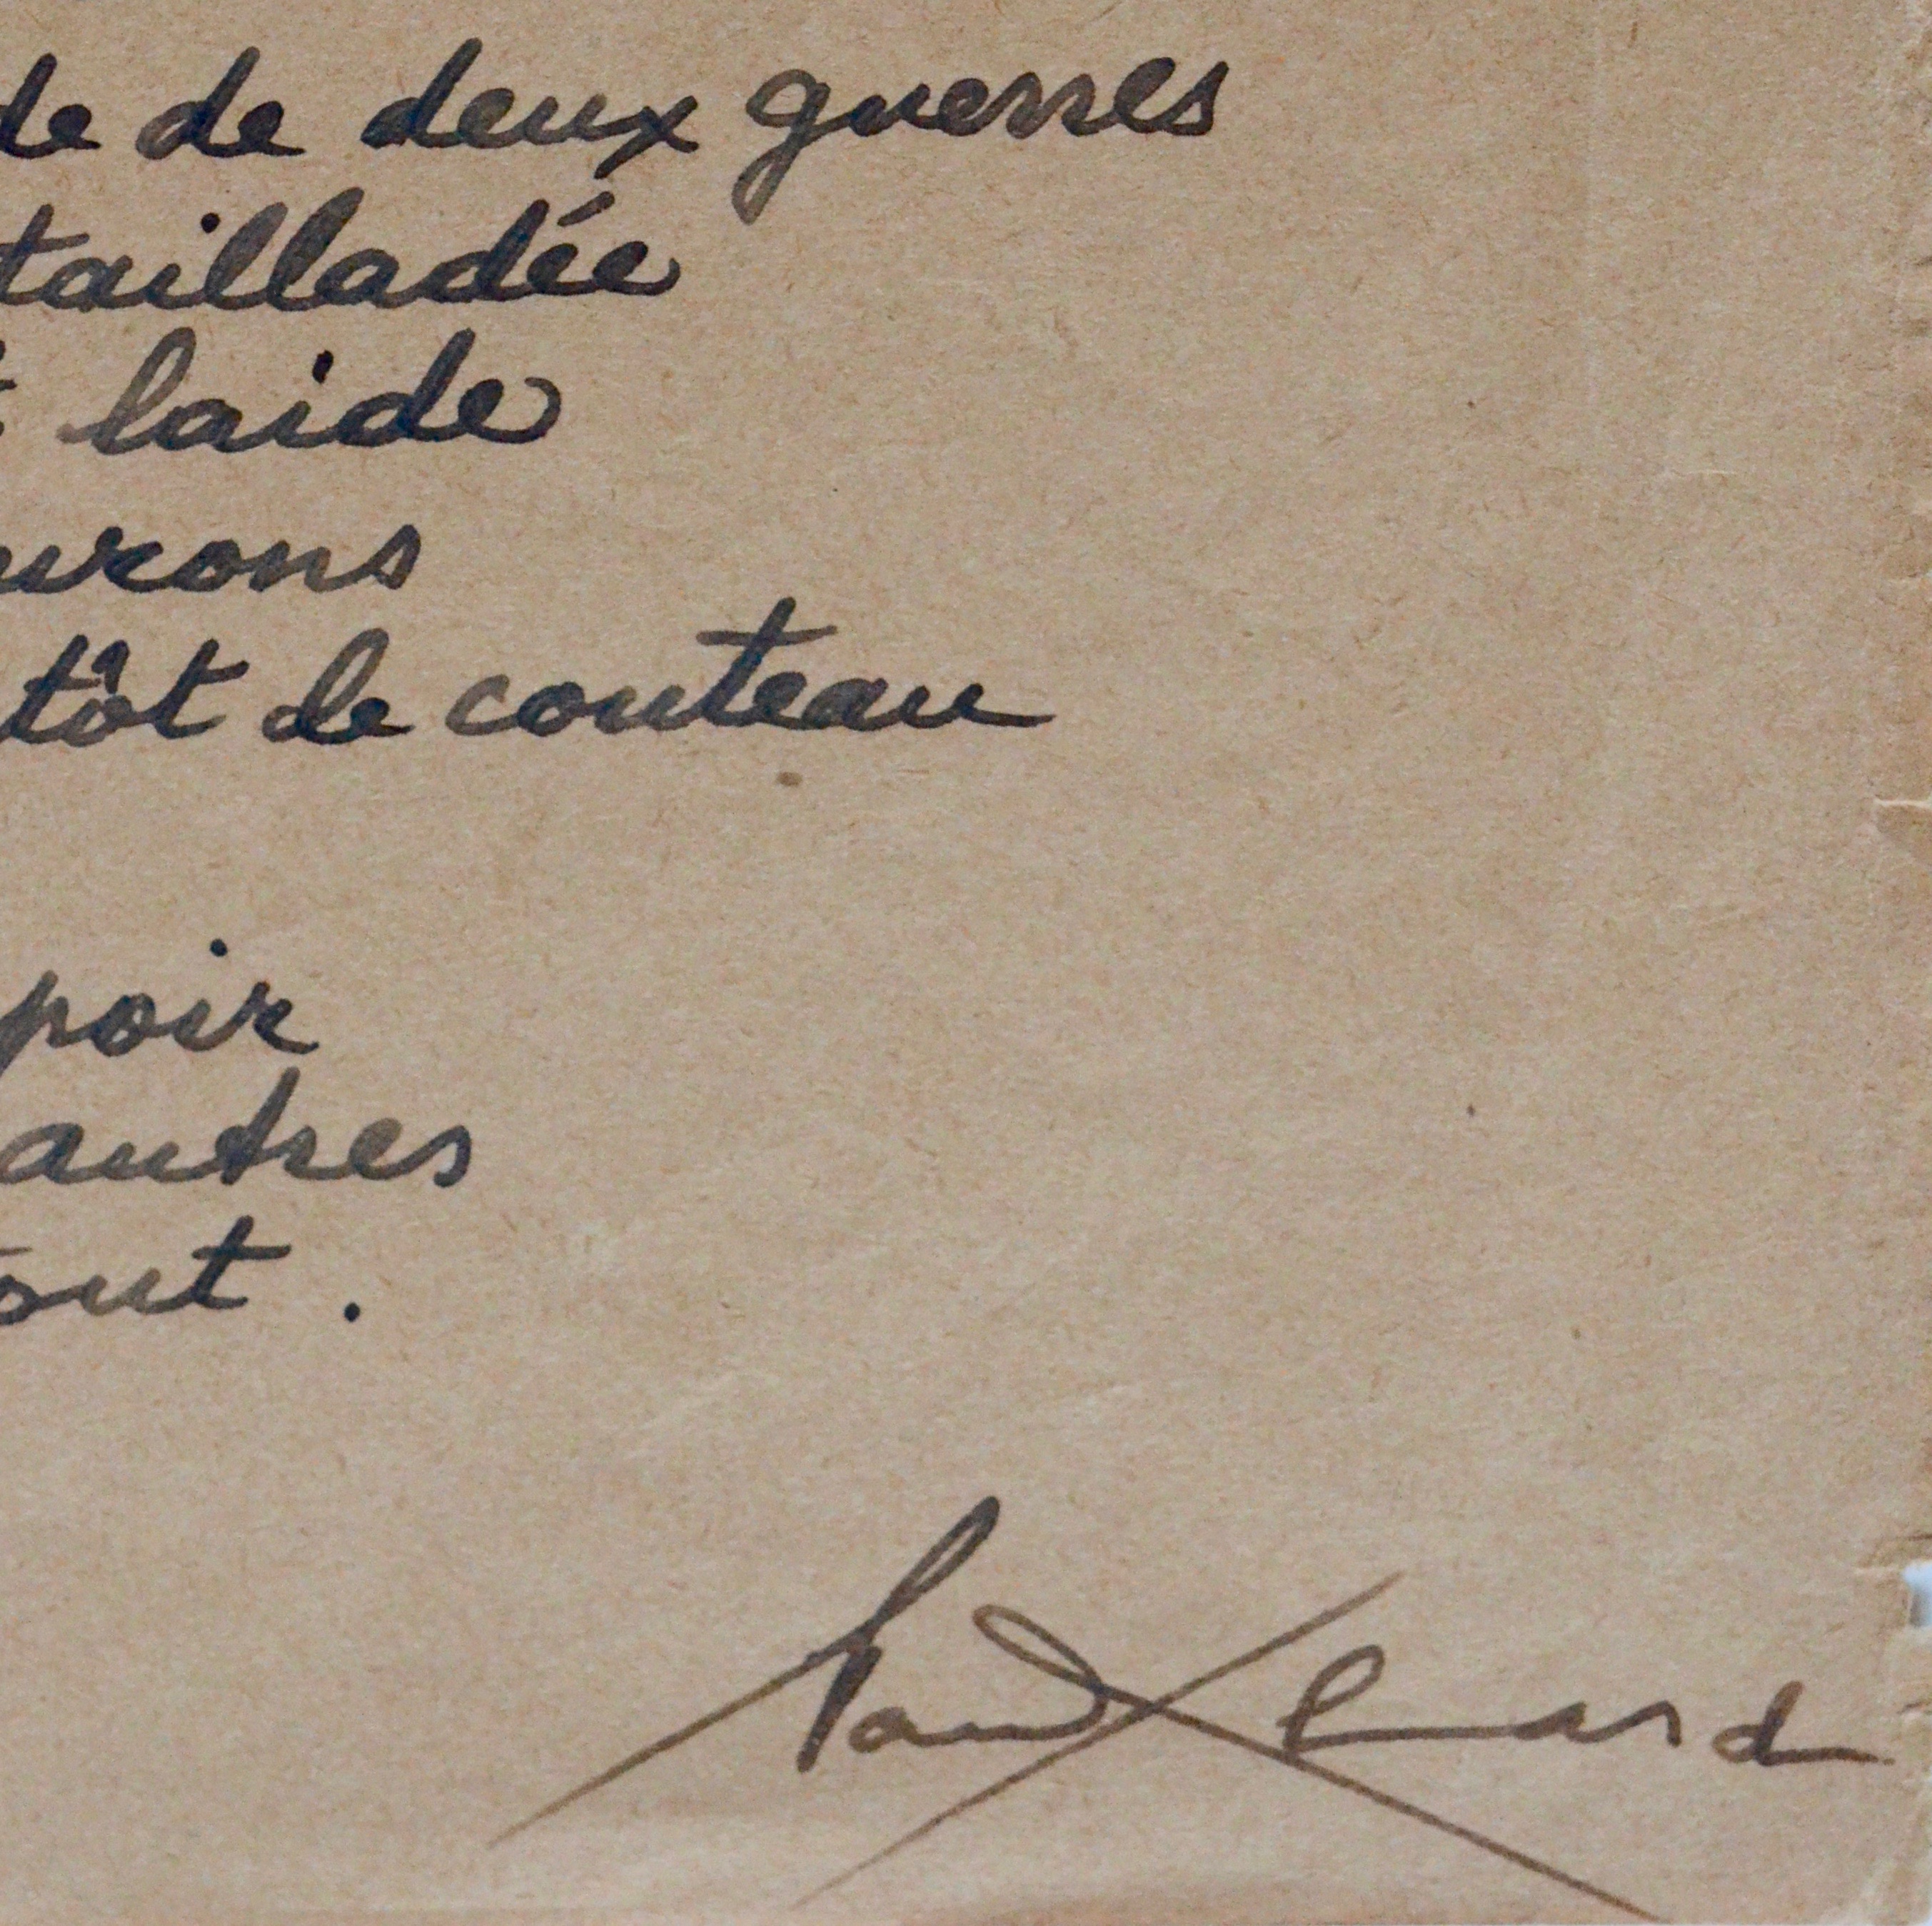 de de deux guerres
tailladée
laide
urons
tôt de couteau
poir
autres
out .
Paul Eluard